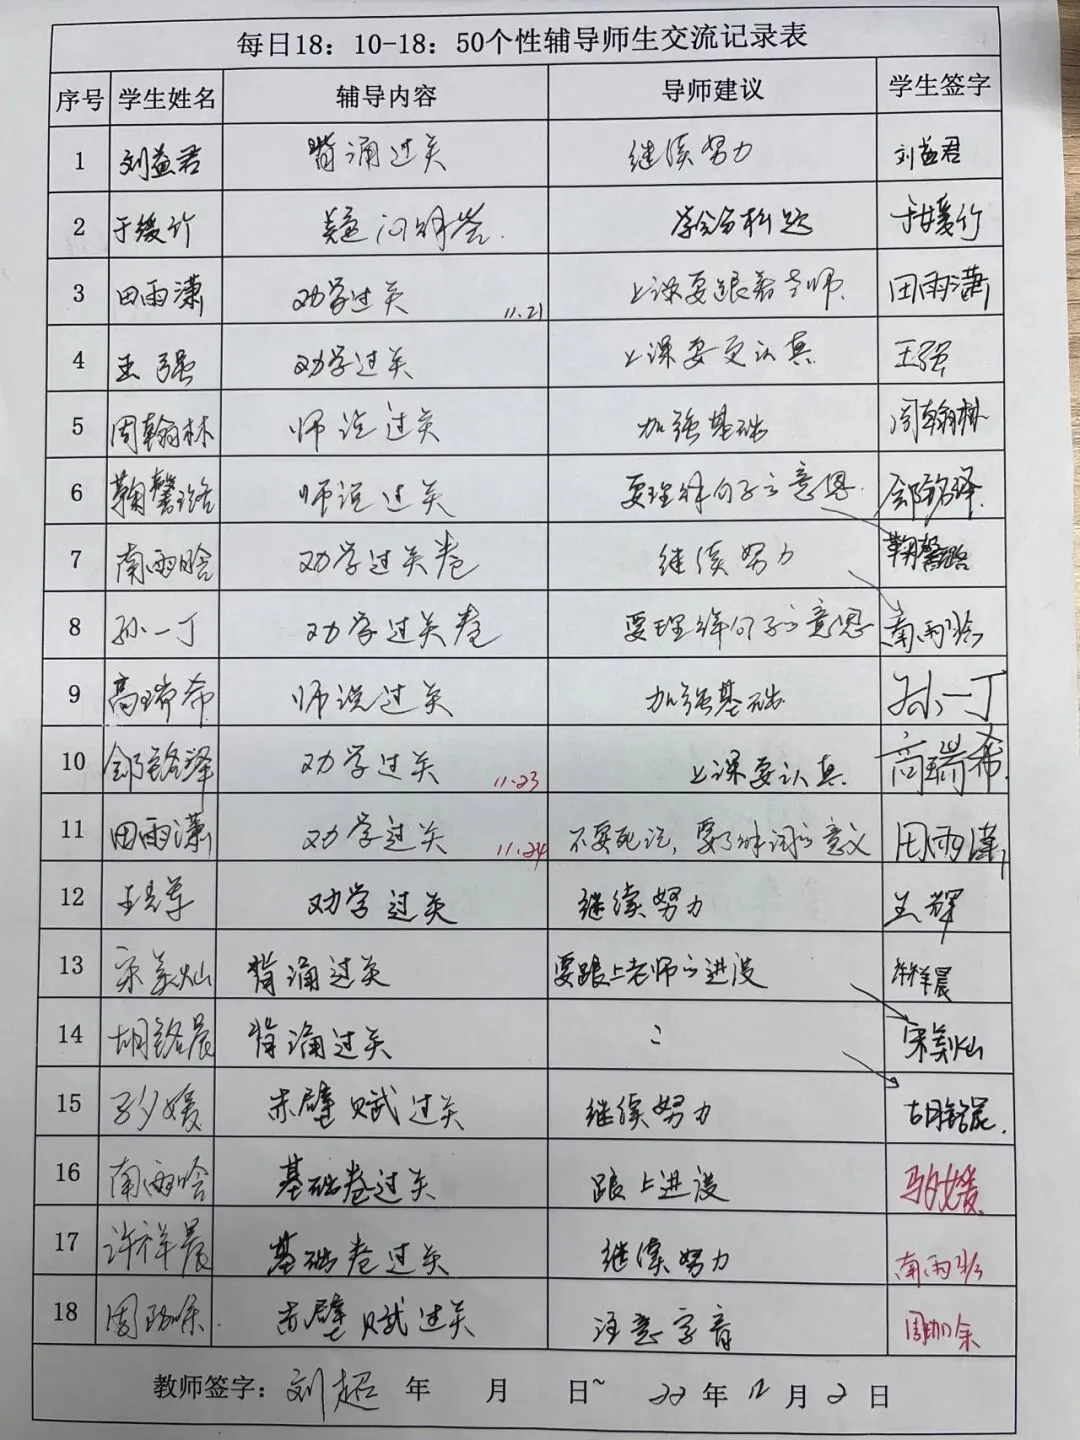 每日18：10-18：50个性辅导师生交流记录表
序号 学生姓名 辅导内容 导师建议 学生签字
1 刘益君 背诵过关 继续努力 刘益君
2 于媛竹 疑问解答. 学会分析题 于媛竹
3 田雨潇 劝学过关 11.21 上课要跟着老师. 田雨潇
4 王强 劝学过关 上课要更认真 王强
5 周翰林 师说过关 加强基础 周翰林
6 鞠馨璐 师说过关 要理解句子之意思. 郐铭泽.
7 南雨晗 劝学过关卷 继续努力 鞠馨璐
8 孙一丁 劝学过关卷 要理解句子之意思 南雨晗
9 高瑞希 师说过关 加强基础. 孙一丁
10 郐铭泽 劝学过关 11.23 上课要认真. 高瑞希.
11 田雨潇 劝学过关 11.24 不要死记，要了解词之意义 田雨潇
12 劝学过关 继续努力 王辉
13 宋美灿 背诵过关 要跟上老师之进度 许祥晨
14 胡铭晨 背诵过关 宋美灿
15 赤壁赋过关 继续努力 胡铭晨.
16 南雨晗 基础卷过关 跟上进度
17 许祥晨 基础卷过关 继续努力 南雨晗
18 赤壁赋过关 注意字音
教师签字：刘超 年 月 日~ 22年12月2日